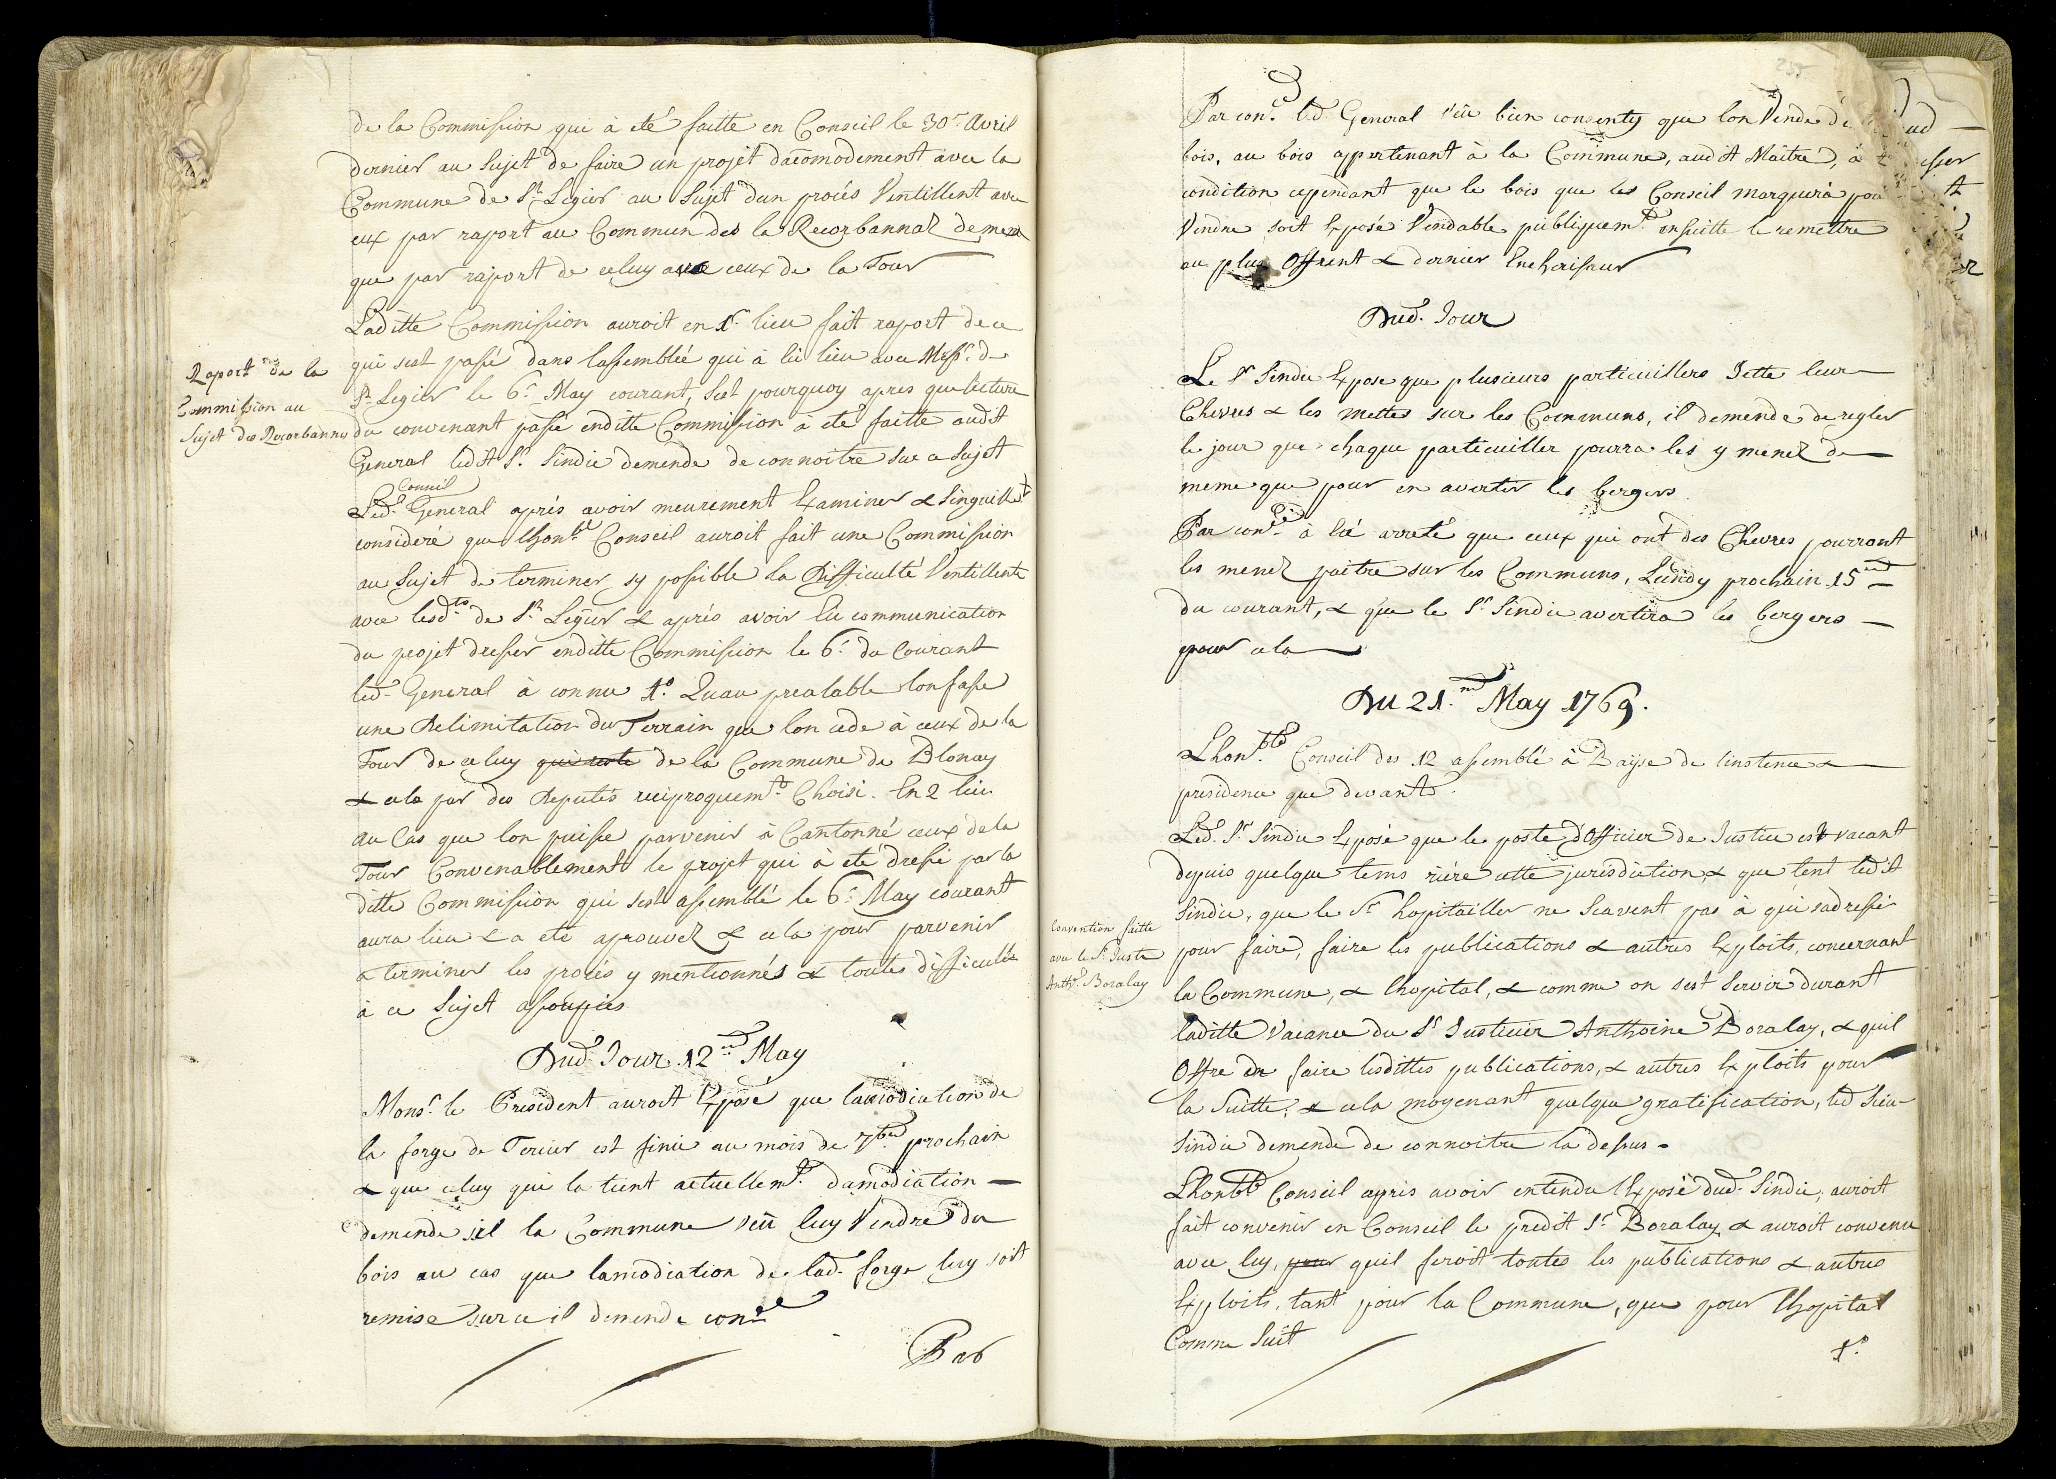 de la Commission qui à eté faitte en Conseil le 30e. Avril
dernier au Sujet de faire un projet dacomodement avec la
Commune de St. Legier au Sujet dun procés Ventillent avec
eux par raport au Commun des la Recorbannaz de meme
que par raport de celuy avec ceux de la Tour
Laditte Commission auroit en 1r. lieu fait raport de ce
qui sest passé dans lassemblée qui à lieu lieu avec Messrs. de
St. Legier le 6e. May courant, Sest pourquoy apres que lecture
Raport de la
Commission au
Sujet des Recorbannes
du convenant passé enditte Commission à eté faitte audit
General ledit Sr. Sindic demende de connoitre sur ce Sujet
Conseil
Led. General aprés avoir meurement Examiner & Singuillt
consideré que lhonble Conseil auroit fait une Commission
au Sujet de terminer sy possible la Difficulté Ventillente
avec lesdts. de St. Legier & aprés avoir lu communication
du projet dresser enditte Commission le 6e. du Courant
led. General à connu 1o. Quau prealable lon fasse
une Delimitation du Terrain que lon cede à ceux de la
Tour de celuy qui reste de la Commune de Blonay
& cela par des Deputés reciproquemt. Choisi. En 2 lieu
au Cas que lon puisse parvenir à Cantonné ceux de la
Tour Convenablement le projet qui à eté dressé par la
ditte Commission qui sest assemblé le 6e. May courant
aura lieu & a eté aprouvez & cela pour parvenir
a terminer les procés y mentionnés & toutes difficultés
à ce Sujet assoupies
Dud. Jour 12me May
Monsr. le President auroit Exposé que lamodiation de
la forge de Tercier est finie au mois de 7bre prochain
& que celuy qui la tient actuellemt. damodiation
demende sil la Commune veü luy Vendre du
bois au cas que lamodiation de lad. forge luy soit
remise sur ce il demende conce
Par
255
Par conce. led. General veü bien consenty que lon Vende de
bois, au bois appertenant à la Commune, audit Maitre, à
condition cependant que le bois que les Conseil marquerà pour
Vendre soit Exposé Vendable publiquemt. ensuitte le remettre
au plus Offrent & dernier Encherisseur
Dud. Jour
Le Sr Sindic Expose que plusieurs particuillers Jette leur
Chevres & les mettes sur les Communs, il demende de regler
le jour que chaque particuiller pourra les y menez de
meme que pour en avertir les bergers
Par conce. à lié arreté que ceux qui ont des Chevres pourront
les menez paitre sur les Communs, Lundy prochain 15me
du courant, & que le Sr Sindic avertira les bergers
pour cela
Du 21.me May 1769.
Lhonble. Conseil des 12 assemblé à Bayse de linstence &
presidence que devant
Led. Sr Sindic Exposé que le poste dOfficier de Justice est vacant
depuis quelque tems riére cette jurisdiction, & que tent ledit
Sindic, que le Sr hopitailler ne Scavent pas à qui sadresser
Convention faitte
avec le Sr Juste
Antht. Boralay
pour faire, faire les publications & autres Exploits, concernant
la Commune, & lhopital, & comme on sest Servir durant
laditte Vacance du Sr Justicier Anthoine Boralay, & quil
Offre de faire lesdittes publications, & autres Exploits pour
la Suitte, & cela moyenant quelque gratification, led Sieur
Sindic demende de connoitre la dessus.
Lhonble Conseil apris avoir entendu lExposé dud. Sindic, auroit
fait convenir en Conseil le predit Sr Boralay & auroit convenu
avec luy, pour quil feroit toutes les publications & autres
Exploits, tant pour la Commune, que pour lhopital
Comme Suit
1o.